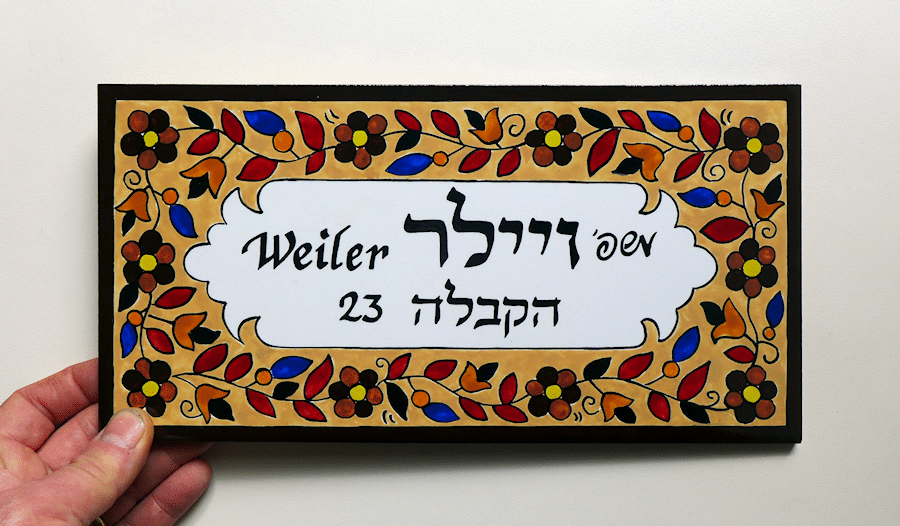 משפ' וויילר Weiler
הקבלה 23